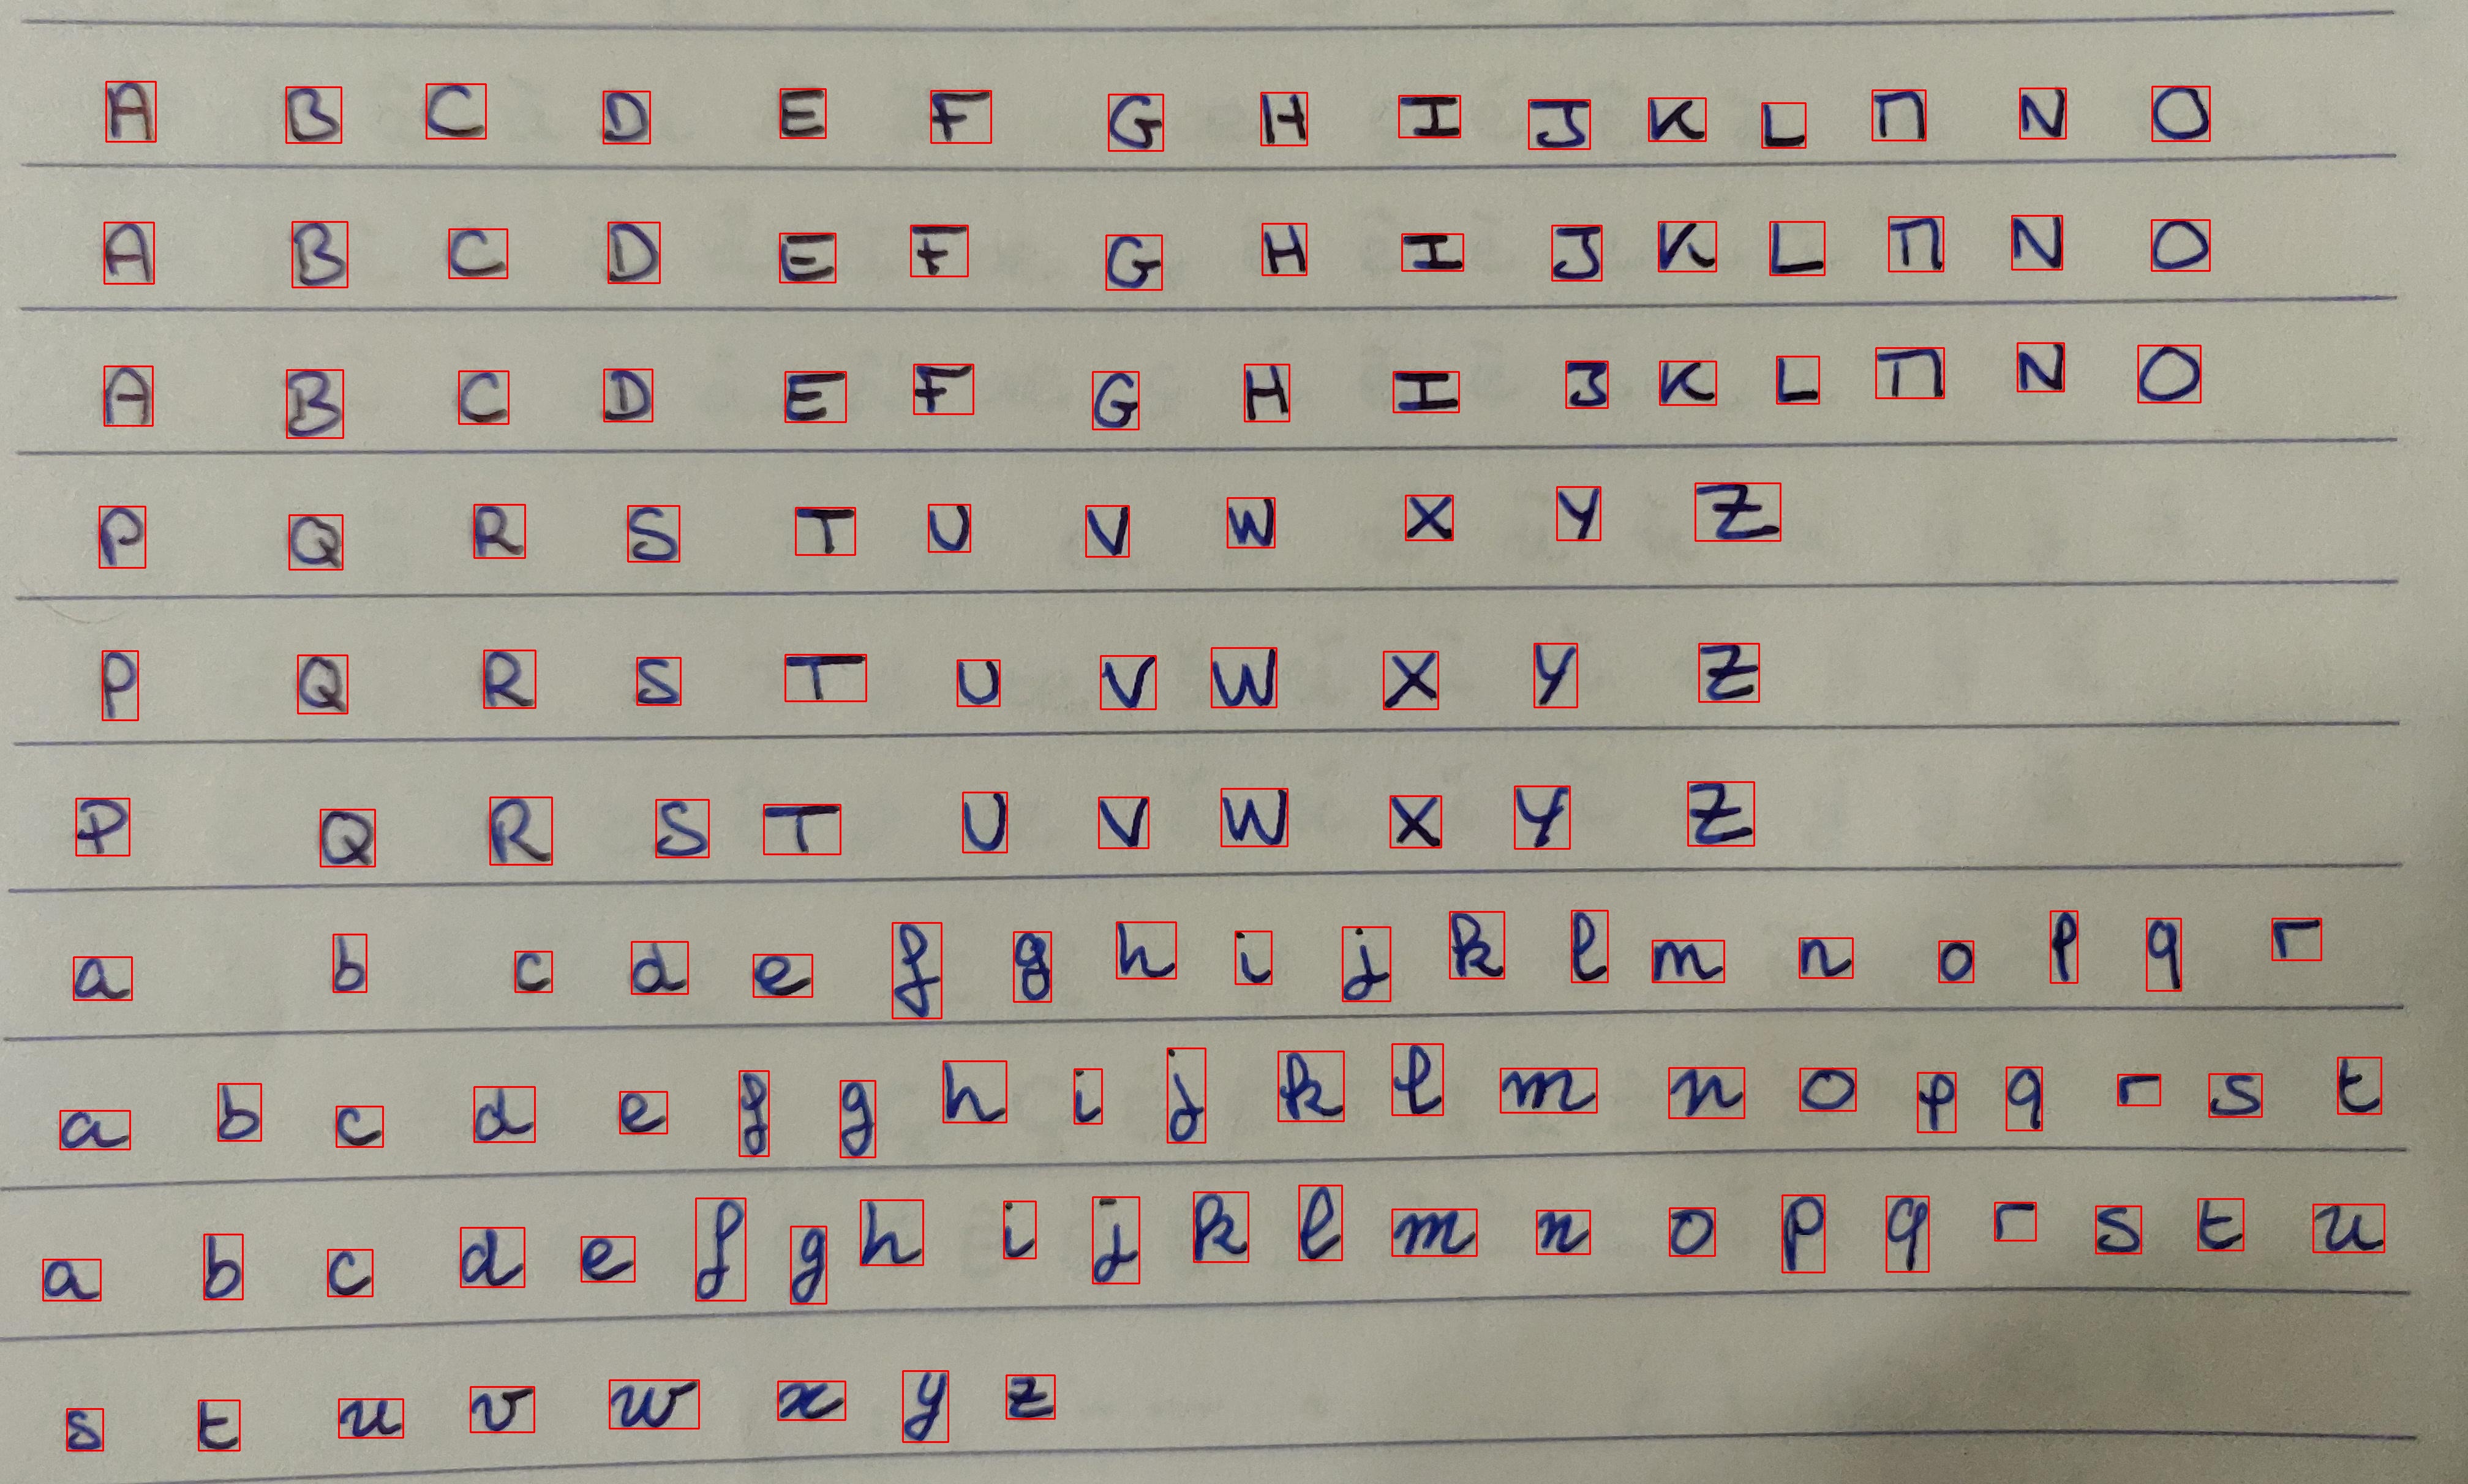 A B C D E F G H I J K L M N O
A B C D E F G H I J K L M N O
A B C D E F G H I J K L M N O
P Q R S T U V W X Y Z
P Q R S T U V W X Y Z
P Q R S T U V W X Y Z
a b c d e f g h i j k l m n o p q r
a b c d e f g h i j k l m n o p q r s t
a b c d e f g h i j k l m n o p q r s t u
s t u v w x y z